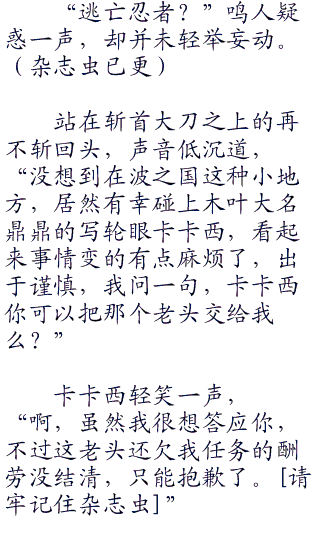 “逃亡忍者？”鸣人疑
惑一声，却并未轻举妄动。
（杂志虫已更）
站在斩首大刀之上的再
不斩回头，声音低沉道，
“没想到在波之国这种小地
方，居然有幸碰上木叶大名
鼎鼎的写轮眼卡卡西，看起
来事情变的有点麻烦了，出
于谨慎，我问一句，卡卡西
你可以把那个老头交给我
么？”
卡卡西轻笑一声，
“啊，虽然我很想答应你，
不过这老头还欠我任务的酬
劳没结清，只能抱歉了。[请
牢记住杂志虫]”